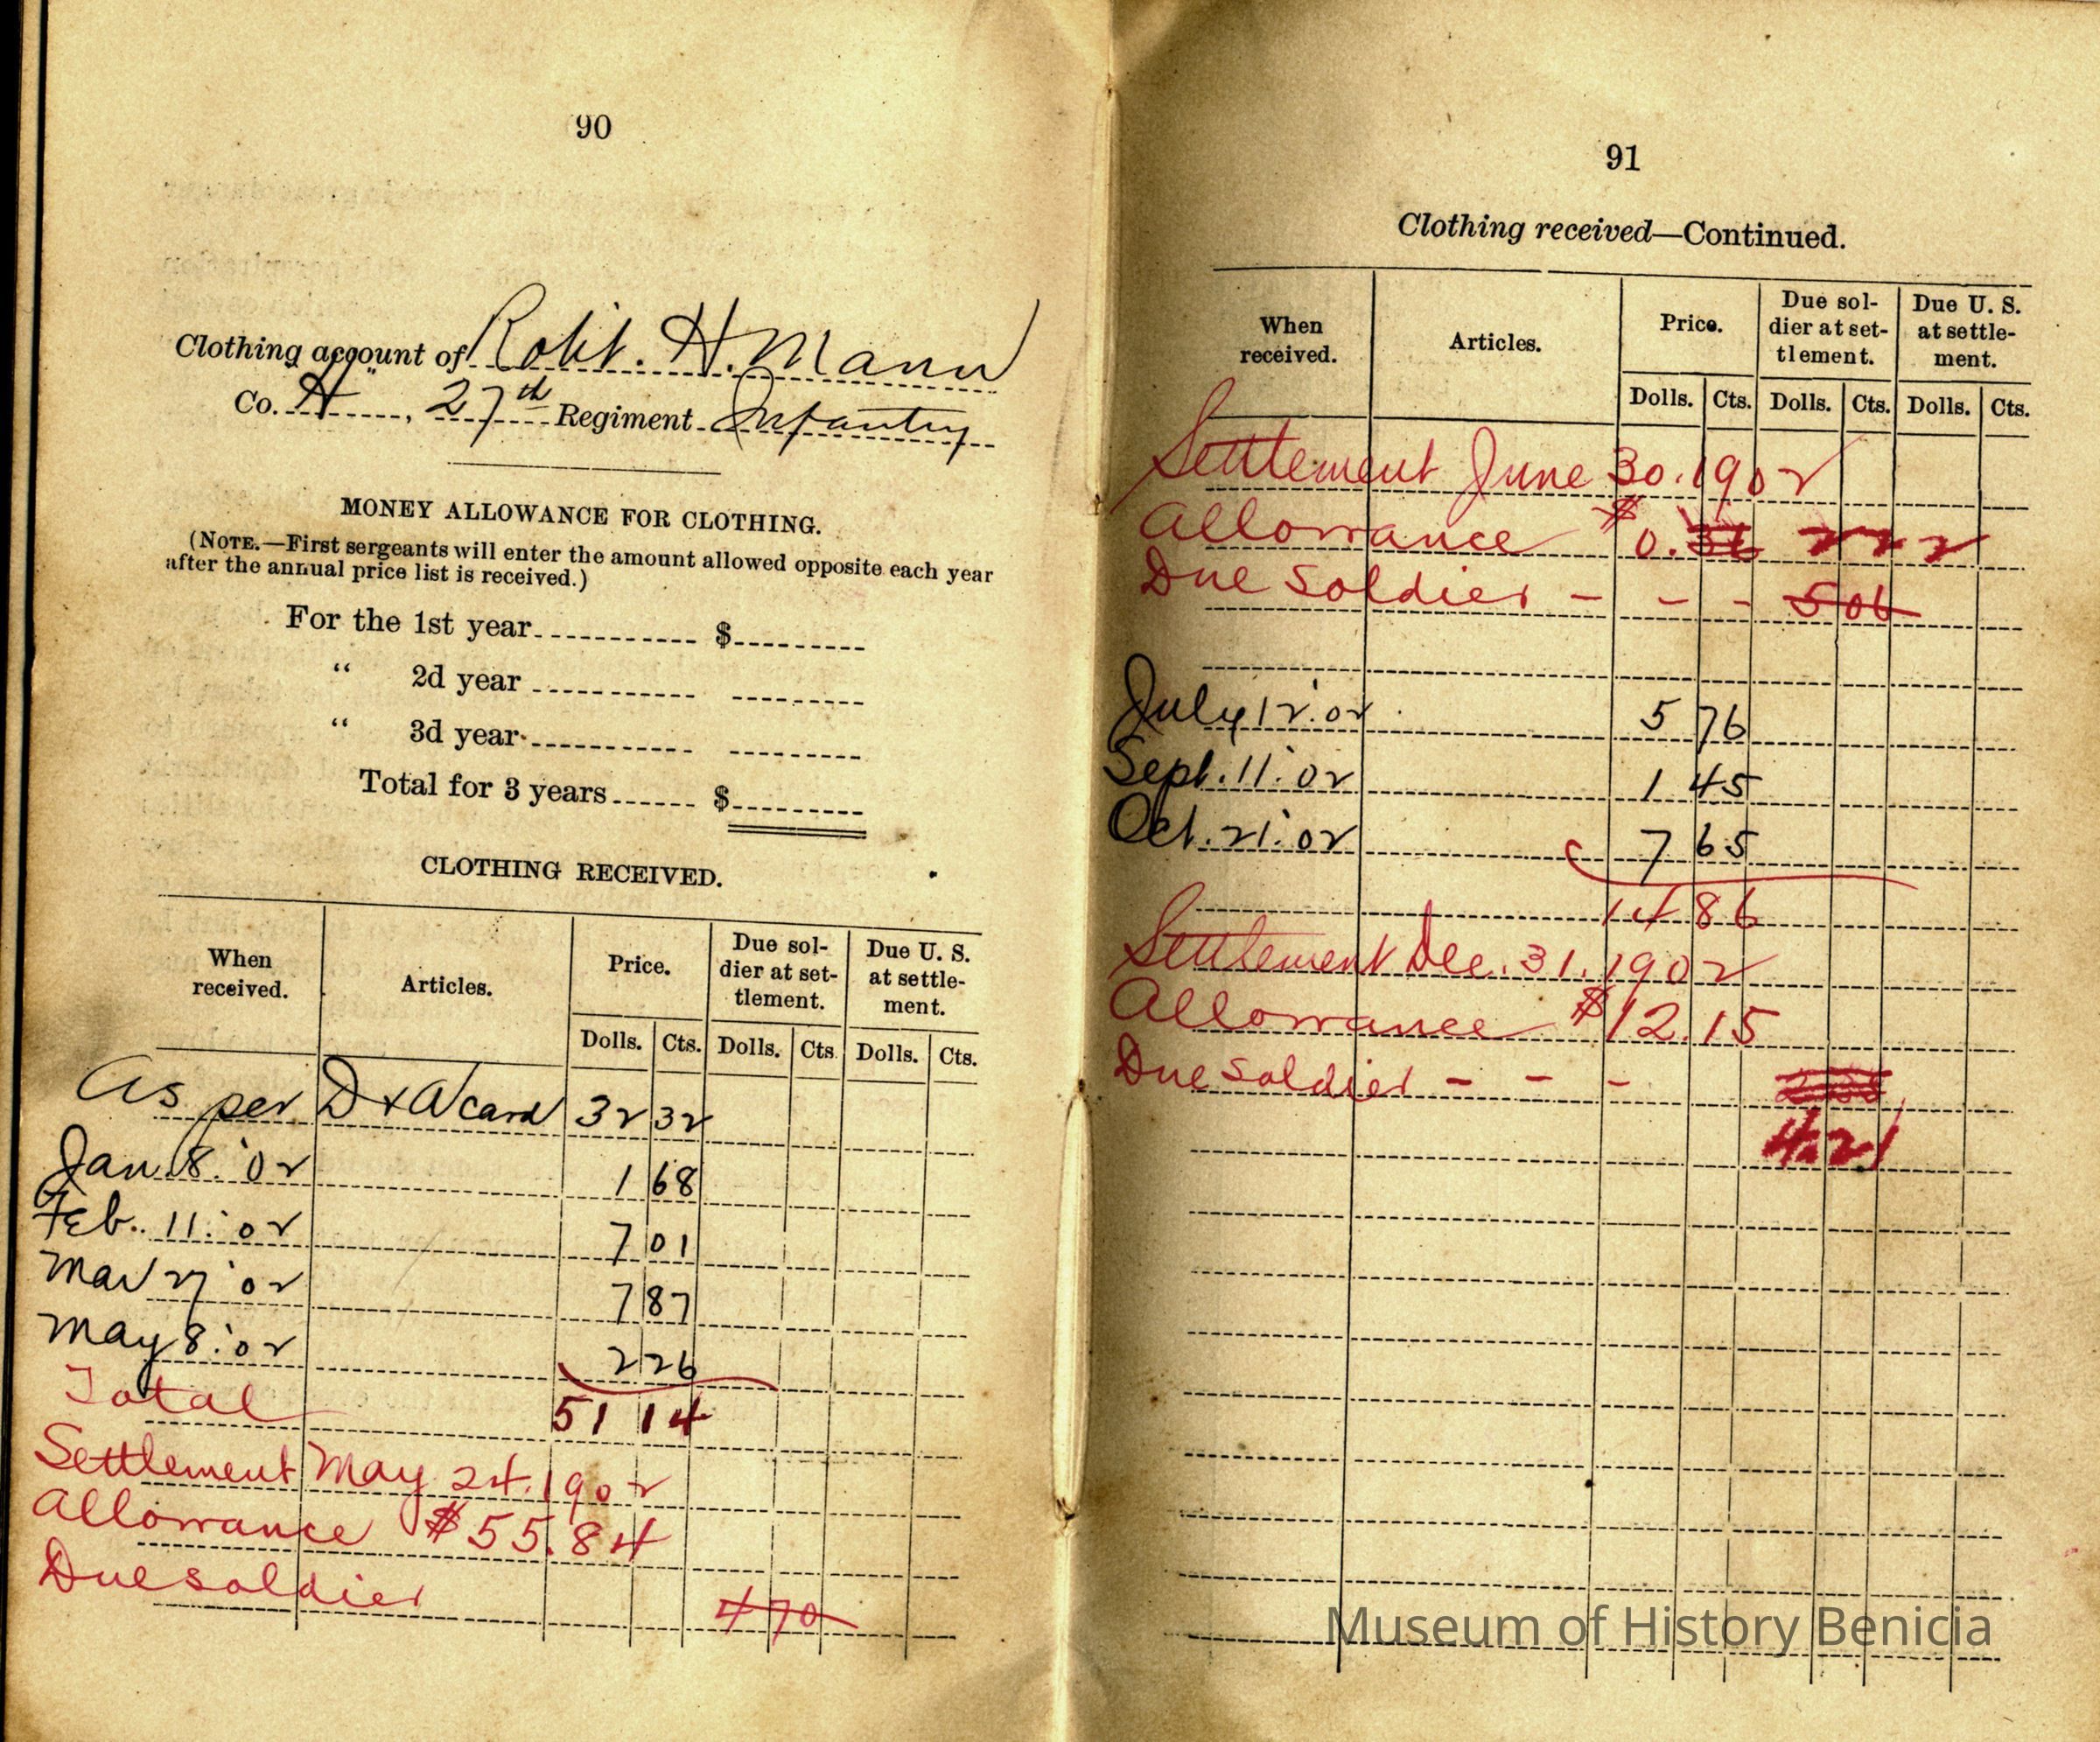 90
Clothing account of Robt. H. Mann
Co. "H", 27th Regiment Infantry
MONEY ALLOWANCE FOR CLOTHING.
(NOTE.—First sergeants will enter the amount allowed opposite each year
after the annual price list is received.)
For the 1st year $
“ 2d year
“ 3d year
Total for 3 years $
CLOTHING RECEIVED.
When received. Articles. Price. Due soldier at settlement. Due U. S. at settlement.
Dolls. Cts. Dolls. Cts. Dolls. Cts.
As per D & A card 32 32
Jan. 8. '02 1 68
Feb. 11. '02 7 01
Mar 27 '02 7 87
May 8. '02 2 26
Total 51 14
Settlement May 24. 1902
Allowance $55.84
Due soldier 4 70
91
Clothing received—Continued.
When received. Articles. Price. Due soldier at settlement. Due U. S. at settlement.
Dolls. Cts. Dolls. Cts. Dolls. Cts.
Settlement June 30. 1902
Allowance $0.36
Due Soldier - - - 5 06
July 12. 02 5 76
Sept. 11. 02 1 45
Oct. 21. 02 7 65
14 86
Settlement Dec. 31. 1902
Allowance $12.15
Due Soldier - - -
4.21
Museum of History Benicia